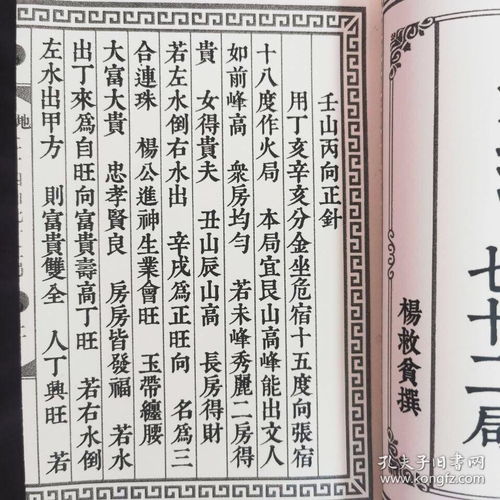 七十二局
楊救貧撰
壬山丙向正針
用丁亥辛亥分金坐危宿十五度向張宿
十八度作火局　本局宜艮山高峰能出文人
如前峰高　衆房均勻　若未峰秀麗二房得
貴　女得貴夫　丑山辰山高　長房得財
若左水倒右水出　辛戌為正旺向　名為三
合連珠　楊公進神生業會旺　玉帶纏腰
大富大貴　忠孝賢良　房房皆發福　若水
出丁來為自旺向富貴壽高丁旺　若右水倒
左水出甲方　則富貴雙全　人丁興旺　若
地
孔夫子旧书网
www.kongfz.com